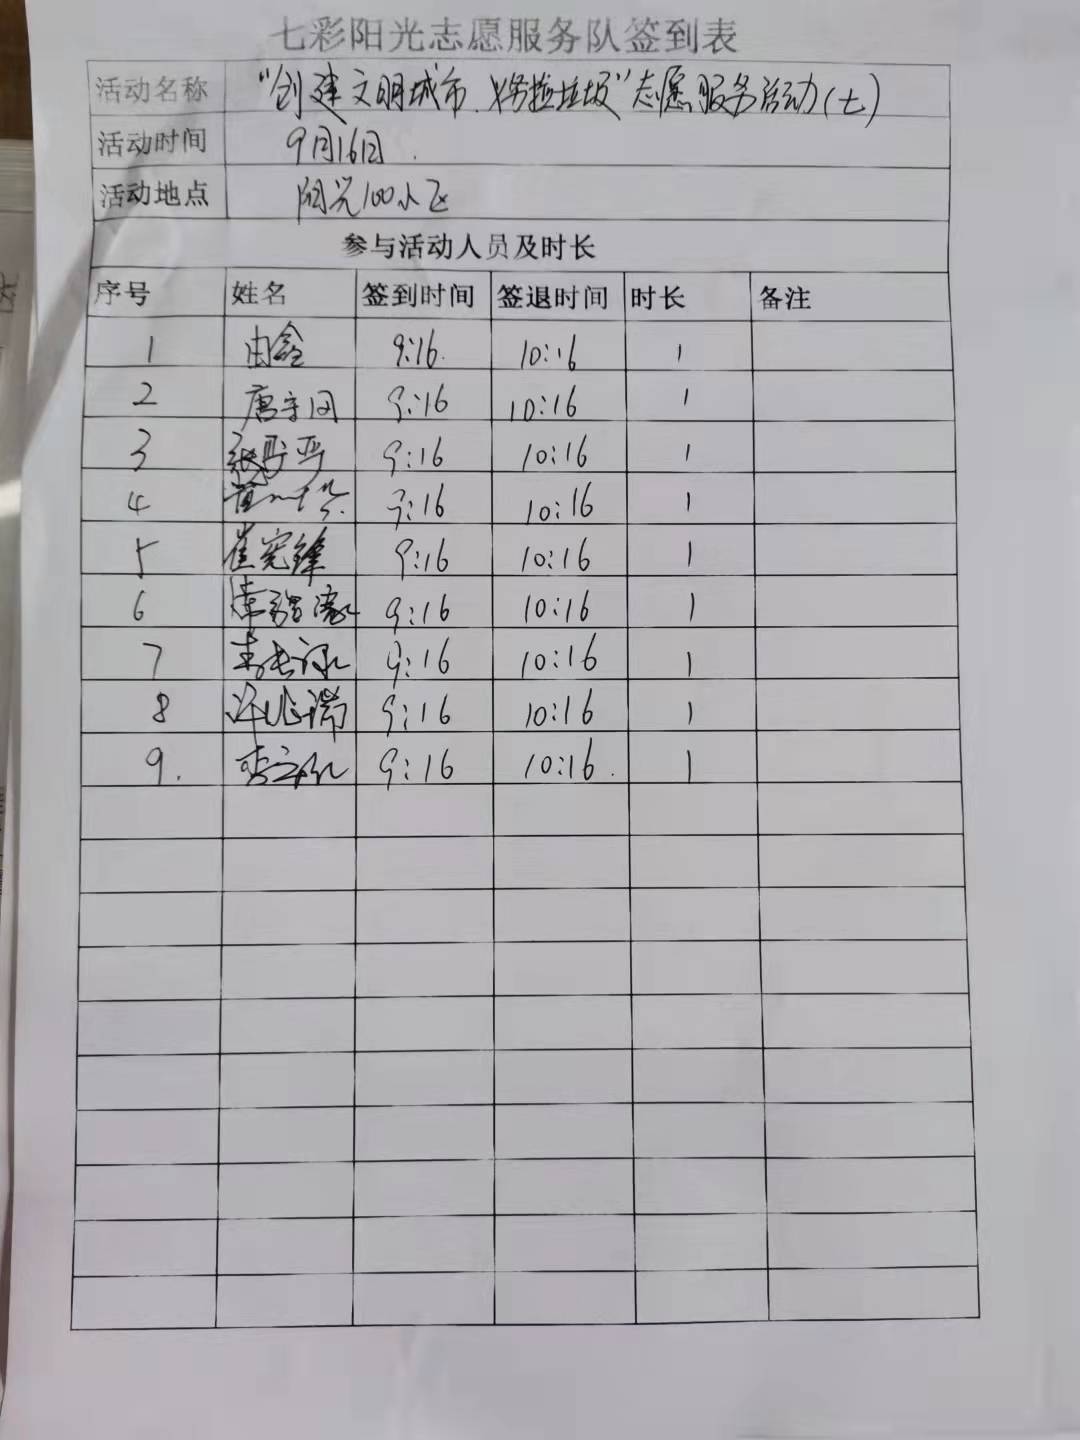 七彩阳光志愿服务队签到表
活动名称 "创建文明城市、义务捡垃圾"志愿服务活动(七)
活动时间 9月16日.
活动地点 阳光100小区
参与活动人员及时长
序号 姓名 签到时间 签退时间 时长 备注
1 由鑫 9:16. 10:16 1
2 唐 9:16 10:16 1
3 9:16 10:16 1
4 9:16 10:16 1
5 崔宪锋 9:16 10:16 1
6 9:16 10:16 1
7 9:16 10:16 1
8 许兆瑞 9:16 10:16 1
9. 李 9:16 10:16. 1